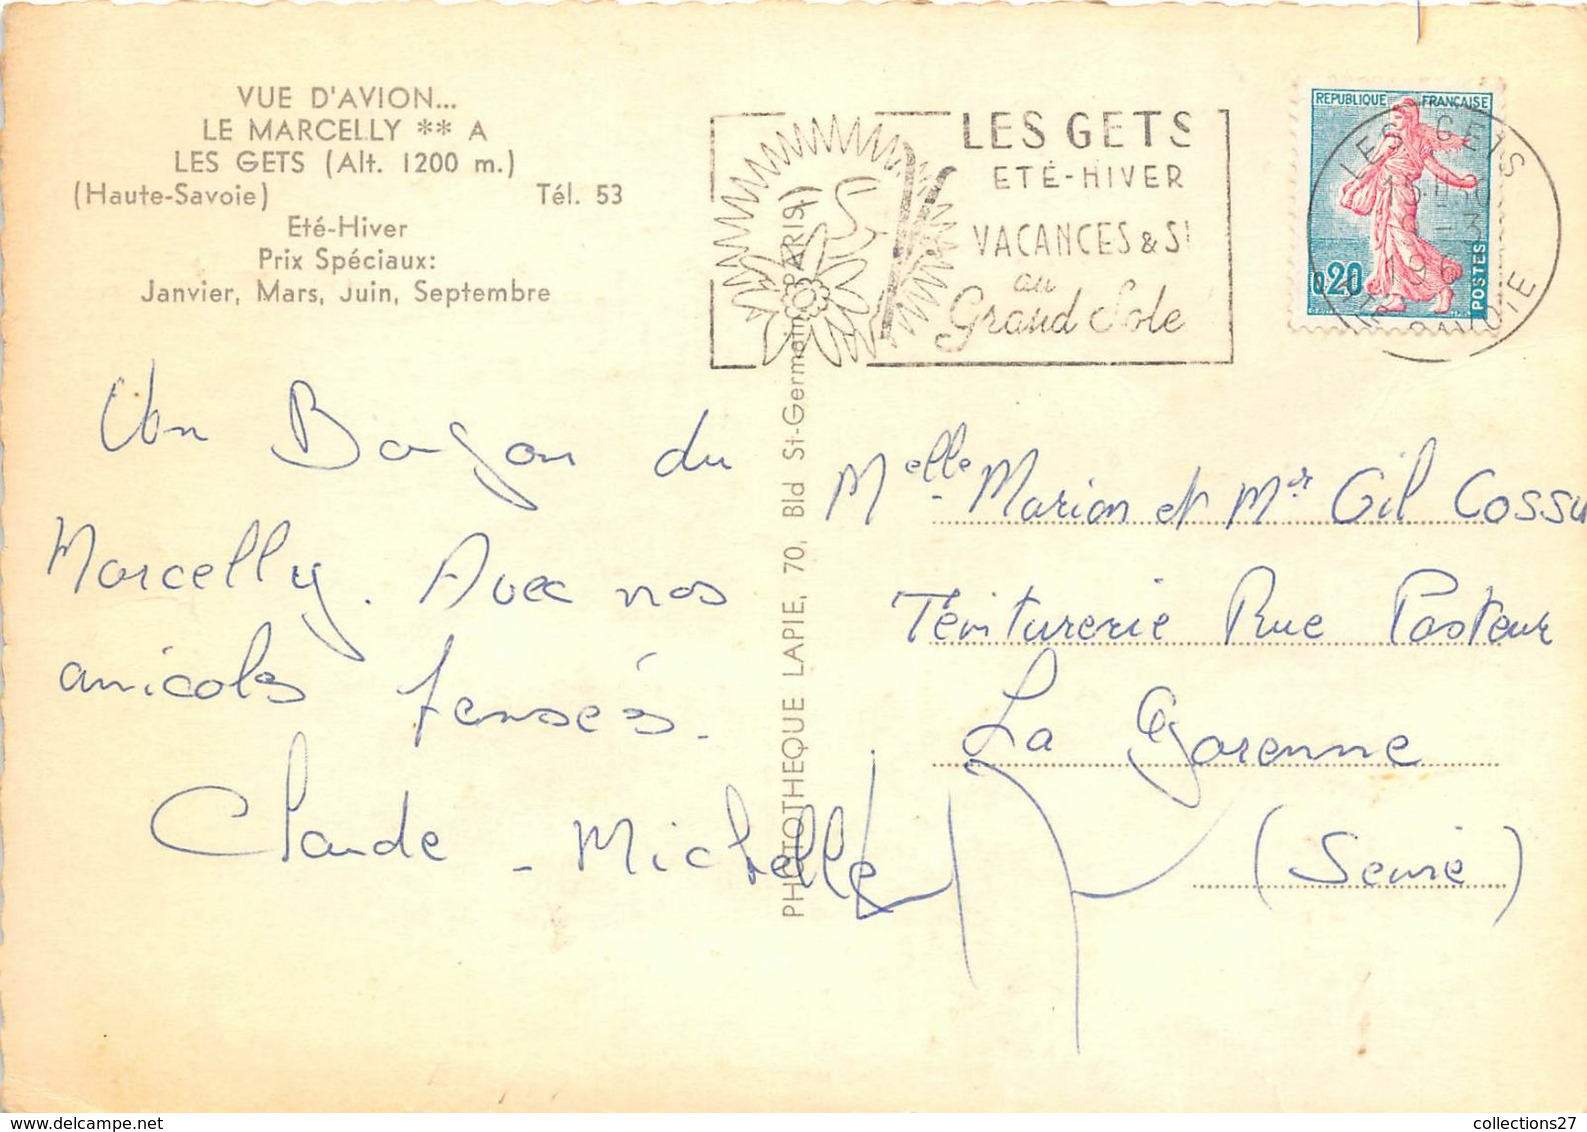 VUE D'AVION...
LE MARCELLY ** A
LES GETS (Alt. 1200 m.)
(Haute-Savoie) Tél. 53
Eté-Hiver
Prix Spéciaux:
Janvier, Mars, Juin, Septembre
LES GETS
ETÉ-HIVER
VACANCES & S
au
Grand Sole
REPUBLIQUE FRANÇAISE
0,20
POSTES
LES GETS
196
HTE SAVOIE
PHOTOTHEQUE LAPIE, 70, Bld St-Germain (PARIS)
Un Bonjour du
Marcelly. Avec nos
amicales pensées.
Claude - Michelle
Melle Marion et Mr Gil Cossu
Teinturerie Rue Pasteur
La Garenne
(Seine)
collections27